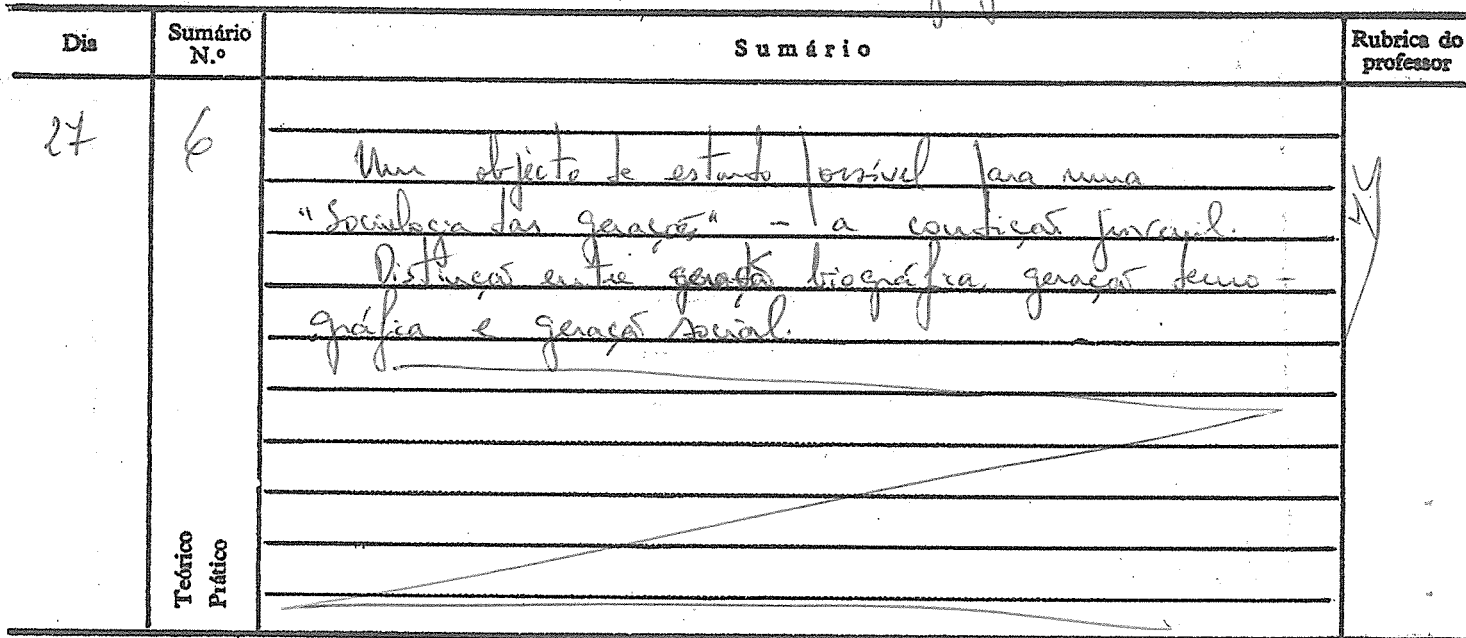 Dia
Sumário N.º
Sumário
Rubrica do professor
27
6
Um objecto de estudo possível para uma
"Sociologia das gerações" - a condição juvenil.
Distinção entre geração biográfica, geração demo-
gráfica e geração social.
Teórico
Prático